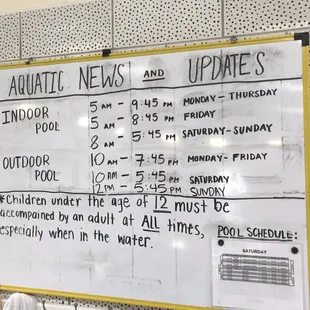 AQUATIC NEWS AND UPDATES
INDOOR POOL
5 AM - 9:45 PM MONDAY - THURSDAY
5 AM - 8:45 PM FRIDAY
8 AM - 5:45 PM SATURDAY - SUNDAY
OUTDOOR POOL
10 AM - 7:45 PM MONDAY - FRIDAY
10 AM - 5:45 PM SATURDAY
12 PM - 5:45 PM SUNDAY
*Children under the age of 12 must be
accompained by an adult at ALL times,
especially when in the water.
POOL SCHEDULE:
SATURDAY